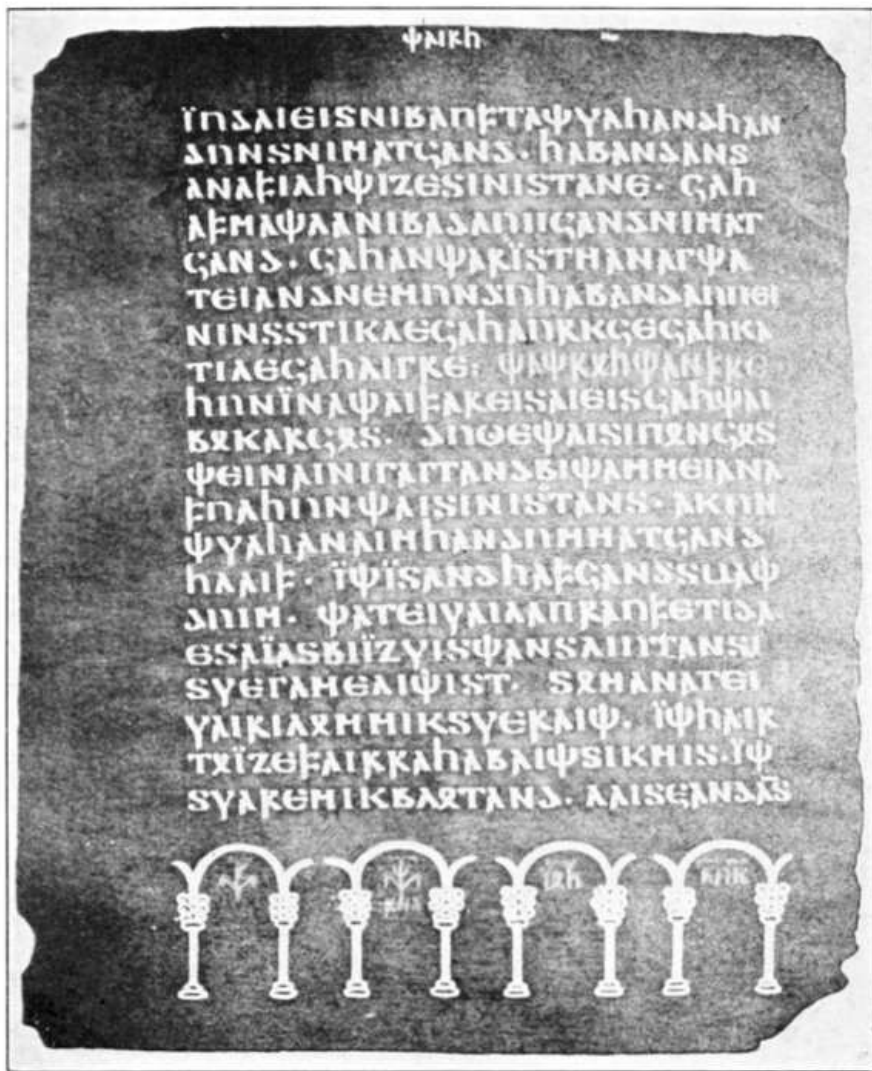 𐌸𐌰𐌹𐍂𐌷
𐌹̈𐌿𐌳𐌰𐌹𐌴𐌹𐍃𐌽𐌹𐌱𐌰𐌿𐍆𐍄𐌰𐌸𐍅𐌰𐌷𐌰𐌽𐌳𐌷𐌰𐌽
𐌳𐌿𐌽𐍃𐌽𐌹𐌼𐌰𐍄𐌾𐌰𐌽𐌳· 𐌷𐌰𐌱𐌰𐌽𐌳𐌰𐌽𐍃
𐌰𐌽𐌰𐍆𐌹𐌻𐌷𐌸𐌹𐌶𐌴𐍃𐌹𐌽𐌹𐍃𐍄𐌰𐌽𐌴· 𐌾𐌰𐌷
𐌰𐍆𐌼𐌰𐌸𐌻𐌰𐌽𐌹𐌱𐌰𐌳𐌰𐌿𐍀𐌾𐌰𐌽𐌳𐌽𐌹𐌼𐌰𐍄
𐌾𐌰𐌽𐌳· 𐌾𐌰𐌷𐌰𐌽𐌸𐌰𐍂𐌹̈𐍃𐍄𐌼𐌰𐌽𐌰𐌲𐌸𐌰
𐍄𐌴𐌹𐌰𐌽𐌳𐌽𐌴𐌼𐌿𐌽𐌳𐌿𐌷𐌰𐌱𐌰𐌽𐌳𐌰𐌿𐍀𐌴𐌹
𐌽𐌹𐌽𐍃𐍃𐍄𐌹𐌺𐌻𐌴𐌾𐌰𐌷𐌰𐌿𐍂𐌺𐌾𐌴𐌾𐌰𐌷𐌺𐌰
𐍄𐌹𐌻𐌴𐌾𐌰𐌷𐌻𐌹𐌲𐍂𐌴· 𐌸𐌰𐌸𐍂𐍉𐌷𐌸𐌰𐌽𐍆𐍂𐌴
𐌷𐌿𐌽𐌹̈𐌽𐌰𐌸𐌰𐌹𐍆𐌰𐍂𐌴𐌹𐍃𐌰𐌹𐌴𐌹𐍃𐌾𐌰𐌷𐌸𐌰𐌹
𐌱𐍉𐌺𐌰𐍂𐌾𐍉𐍃· 𐌳𐌿𐍈𐌴𐌸𐌰𐌹𐍃𐌹𐍀𐍉𐌽𐌾𐍉𐍃
𐌸𐌴𐌹𐌽𐌰𐌹𐌽𐌹𐌲𐌰𐌲𐌲𐌰𐌽𐌳𐌱𐌹𐌸𐌰𐌼𐌼𐌴𐌹𐌰𐌽𐌰
𐍆𐌿𐌻𐌷𐌿𐌽𐌸𐌰𐌹𐍃𐌹𐌽𐌹𐍃𐍄𐌰𐌽𐍃· 𐌰𐌺𐌿𐌽
𐌸𐍅𐌰𐌷𐌰𐌽𐌰𐌹𐌼𐌷𐌰𐌽𐌳𐌿𐌼𐌼𐌰𐍄𐌾𐌰𐌽𐌳
𐌷𐌻𐌰𐌹𐍆· 𐌹̈𐌸𐌹̈𐍃𐌰𐌽𐌳𐌷𐌰𐍆𐌾𐌰𐌽𐌳𐍃𐌵𐌰𐌸
𐌳𐌿𐌹𐌼· 𐌸𐌰𐍄𐌴𐌹𐍅𐌰𐌹𐌻𐌰𐍀𐍂𐌰𐌿𐍆𐌴𐍄𐌹𐌳𐌰
𐌴𐍃𐌰𐌹̈𐌰𐍃𐌱𐌹𐌹̈𐌶𐍅𐌹𐍃𐌸𐌰𐌽𐍃𐌻𐌹𐌿𐍄𐌰𐌽𐍃
𐍃𐍅𐌴𐌲𐌰𐌼𐌴𐌻𐌹𐌸𐌹𐍃𐍄· 𐍃𐍉𐌼𐌰𐌽𐌰𐌲𐌴𐌹
𐍅𐌰𐌹𐍂𐌹𐌻𐍉𐌼𐌼𐌹𐌺𐍃𐍅𐌴𐍂𐌰𐌹𐌸· 𐌹̈𐌸𐌷𐌰𐌹𐍂
𐍄𐍉𐌹̈𐌶𐌴𐍆𐌰𐌹𐍂𐍂𐌰𐌷𐌰𐌱𐌰𐌹𐌸𐍃𐌹𐌺𐌼𐌹𐍃· 𐌹̈𐌸
𐍃𐍅𐌰𐍂𐌴𐌼𐌹𐌺𐌱𐌻𐍉𐍄𐌰𐌽𐌳· 𐌻𐌰𐌹𐍃𐌾𐌰𐌽𐌳𐌰̅𐍃